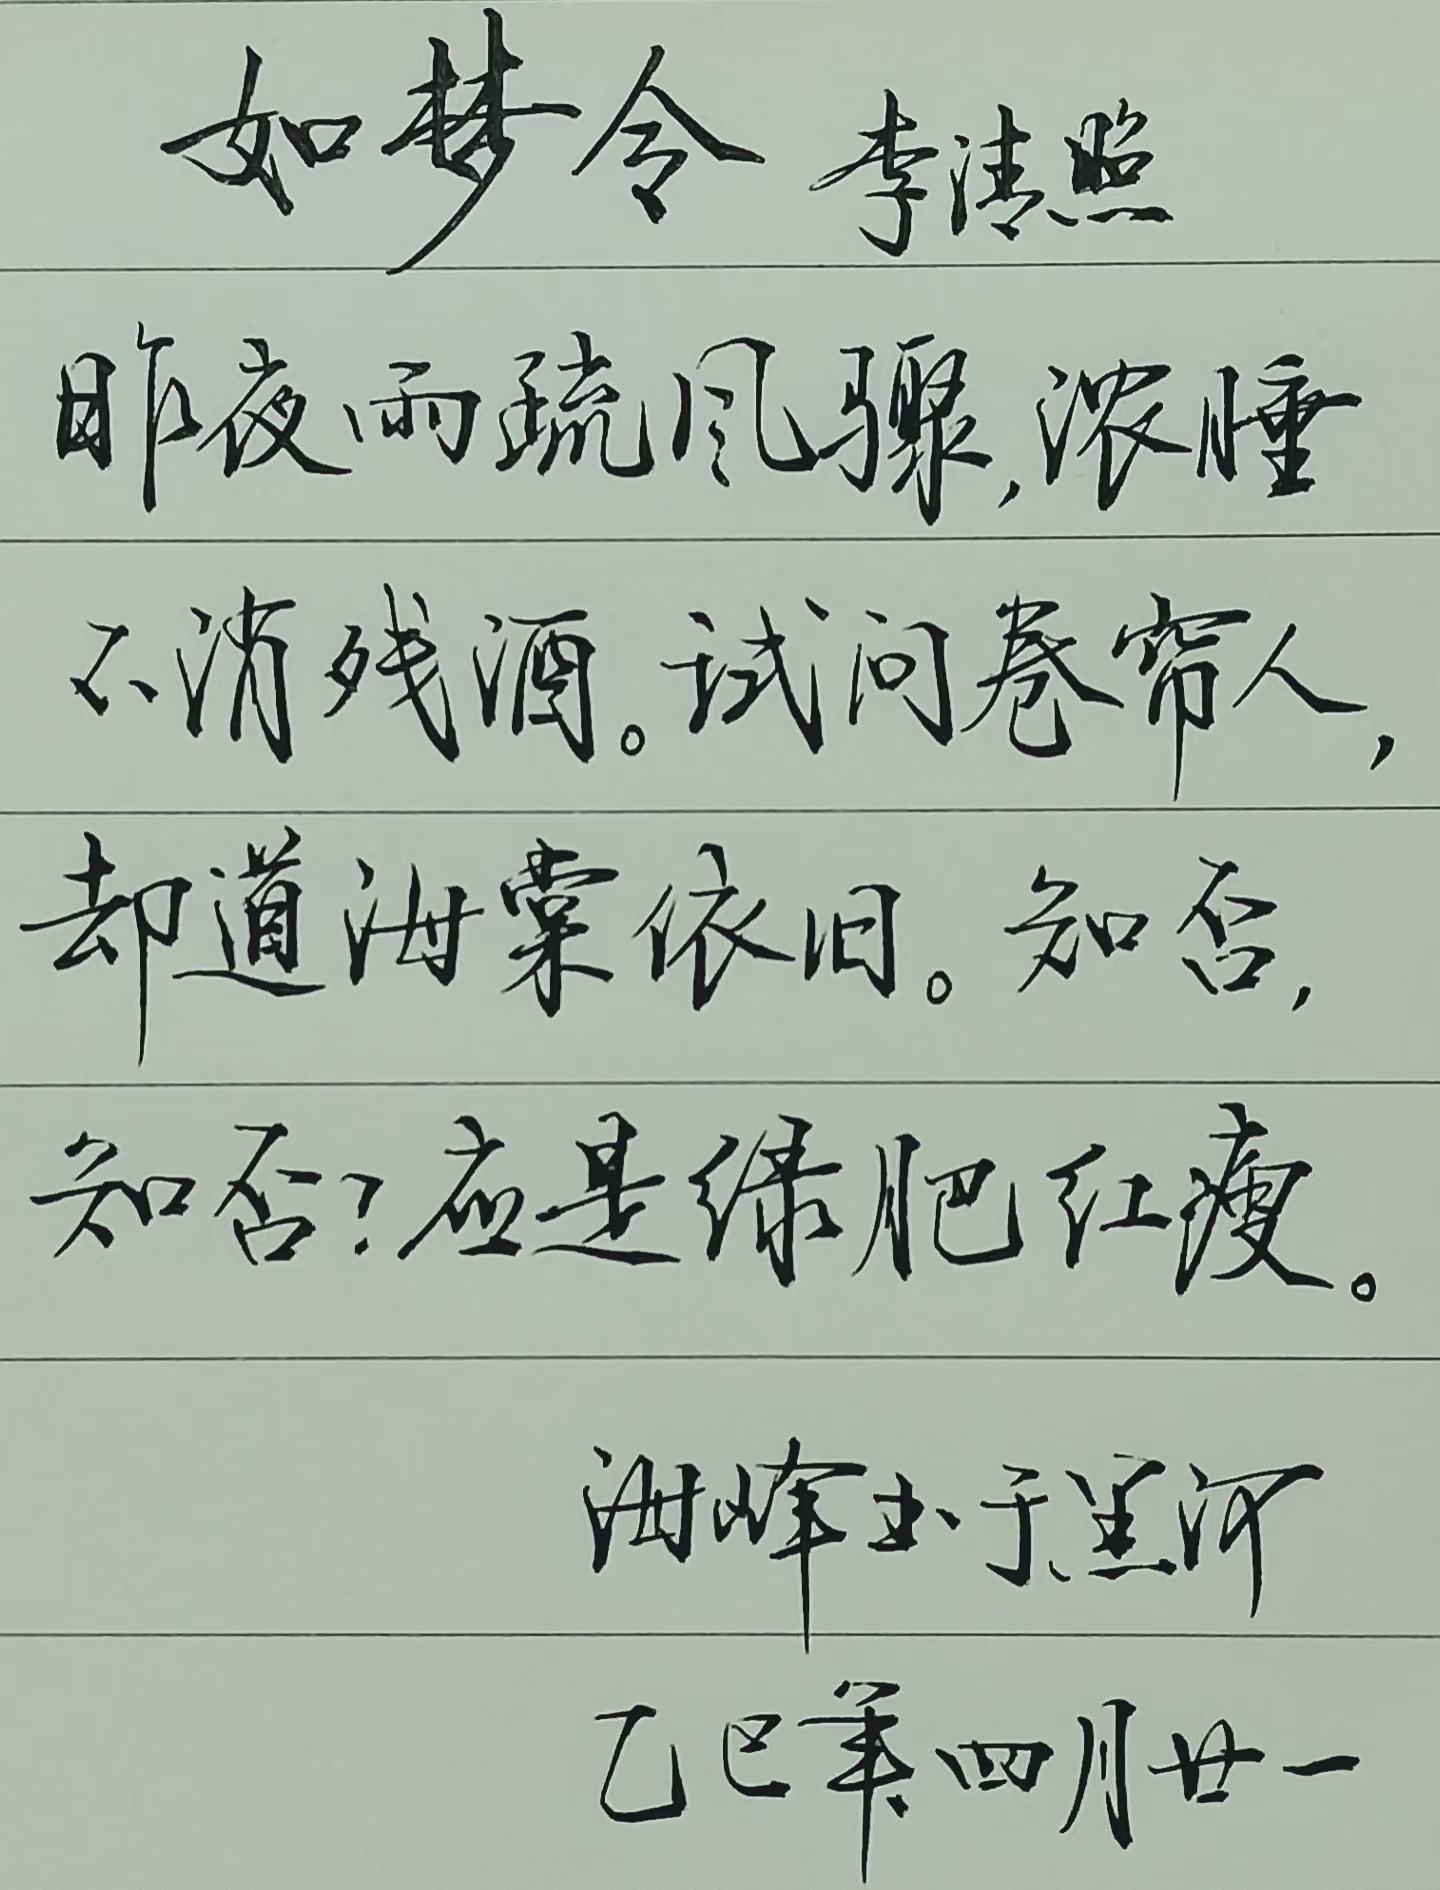 如梦令 李清照
昨夜雨疏风骤,浓睡
不消残酒。试问卷帘人,
却道海棠依旧。知否,
知否?应是绿肥红瘦。
海峰书于黑河
乙巳年四月廿一